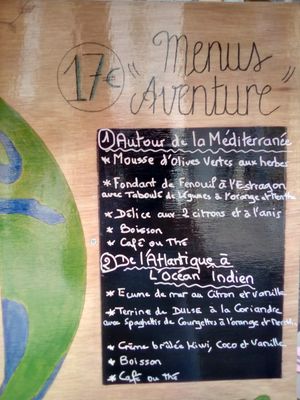 17€
"Menus
Aventure"
1) Autour de la Méditerranée
* Mousse d'olives vertes aux herbes
* Fondant de Fenouil à l'Estragon
avec Taboulé de légumes à l'orange et menthe
* Délice aux 2 citrons et à l'anis
* Boisson
* Café ou Thé
2) De l'Atlantique à
L'Océan Indien
* Ecume de mar au Citron et Vanille
* Terrine de DULSE à la Coriandre
avec Spaghettis de Courgettes à l'orange et
* Crème brûlée Kiwi, Coco et Vanille
* Boisson
* Café ou Thé